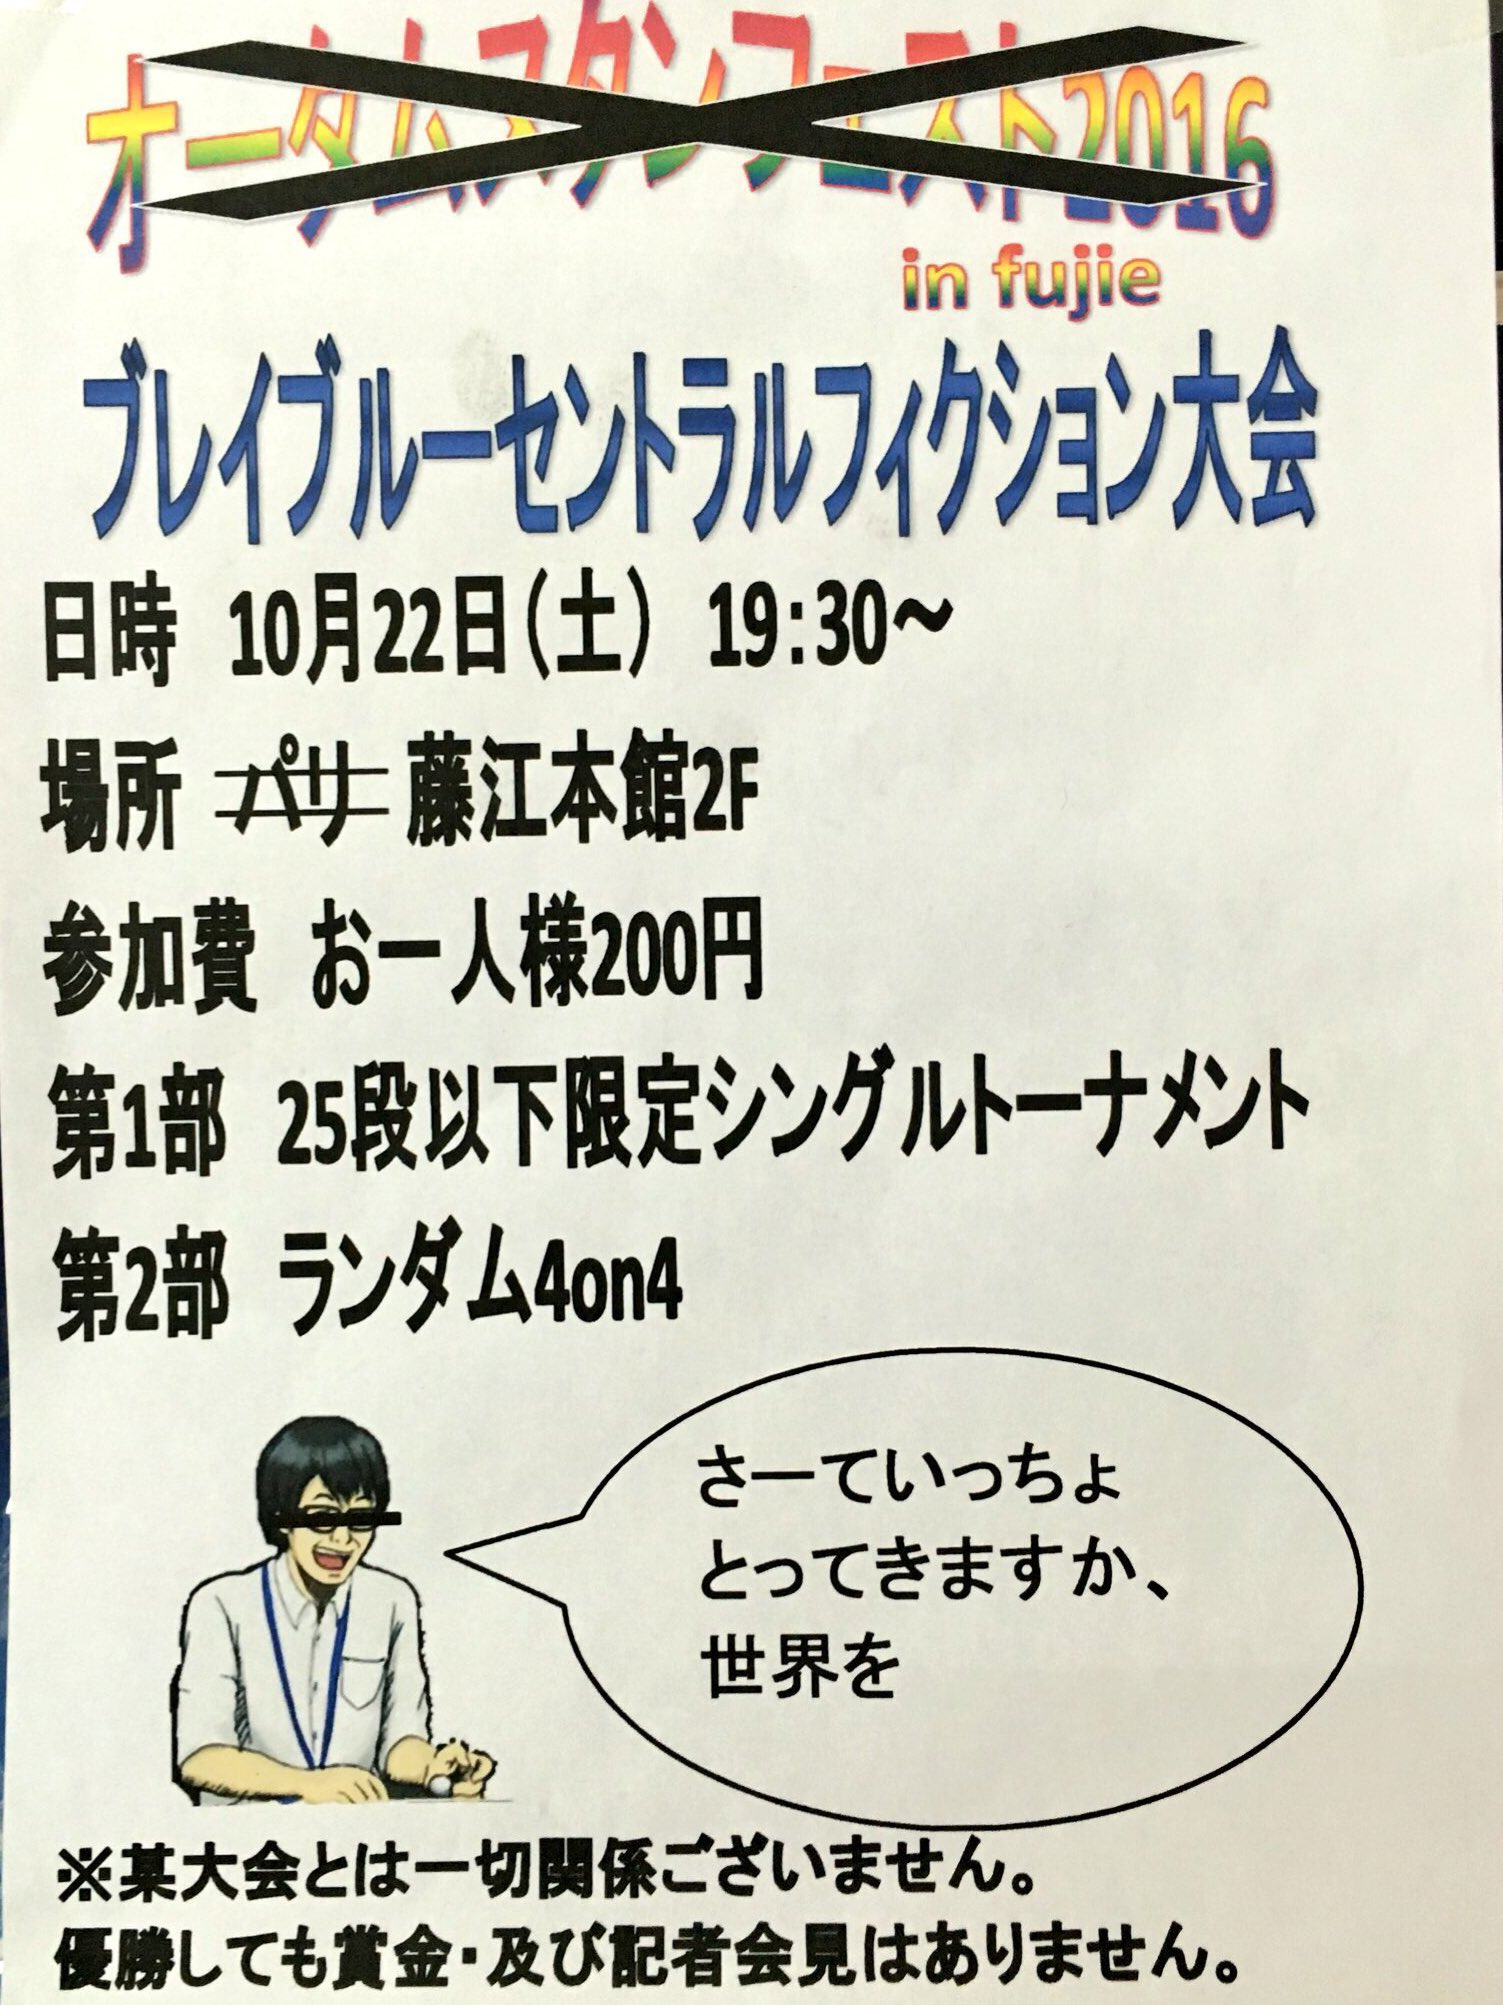 オータムスタンフェスト2016
in fujie
ブレイブルーセントラルフィクション大会
日時　10月22日（土）　19：30～
場所　パリ 藤江本館2F
参加費　お一人様200円
第1部　25段以下限定シングルトーナメント
第2部　ランダム4on4
さーていっちょ
とってきますか、
世界を
※某大会とは一切関係ございません。
優勝しても賞金・及び記者会見はありません。